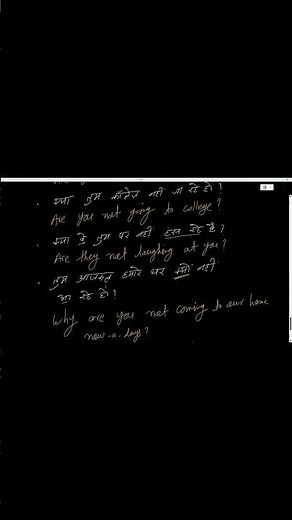 क्या तुम कॉलेज नहीं जा रहे हो !
Are you not going to college?
क्या वे तुम पर नहीं हंस रहे हैं ?
Are they not laughing at you?
तुम आजकल हमारे घर क्यों नहीं
आ रहे हो !
Why are you not coming to our home
now-a-days?